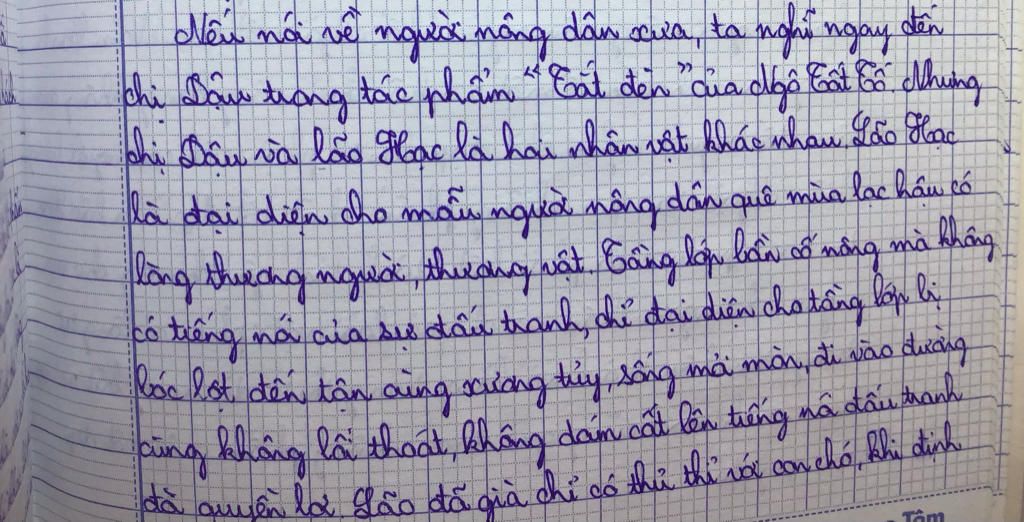 Nếu nói về người nông dân xưa, ta nghĩ ngay đến
chị Dậu trong tác phẩm "Tắt đèn" của Ngô Tất Tố. Nhưng
chị Dậu và lão Hạc là hai nhân vật khác nhau. Lão Hạc
là đại diện cho mẫu người nông dân quê mùa lạc hậu có
lòng thương người, thương vật. Tầng lớp bần cố nông mà không
có tiếng nói của sự đấu tranh, chỉ đại diện cho tầng lớp bị
bóc lột đến tận cùng xương tủy, sống mài mòn, đi vào đường
cùng không lối thoát, không dám cất lên tiếng nói đấu tranh
đòi quyền lợi. Lão đã già chỉ có thủ thỉ với con chó, khi định
Tâm